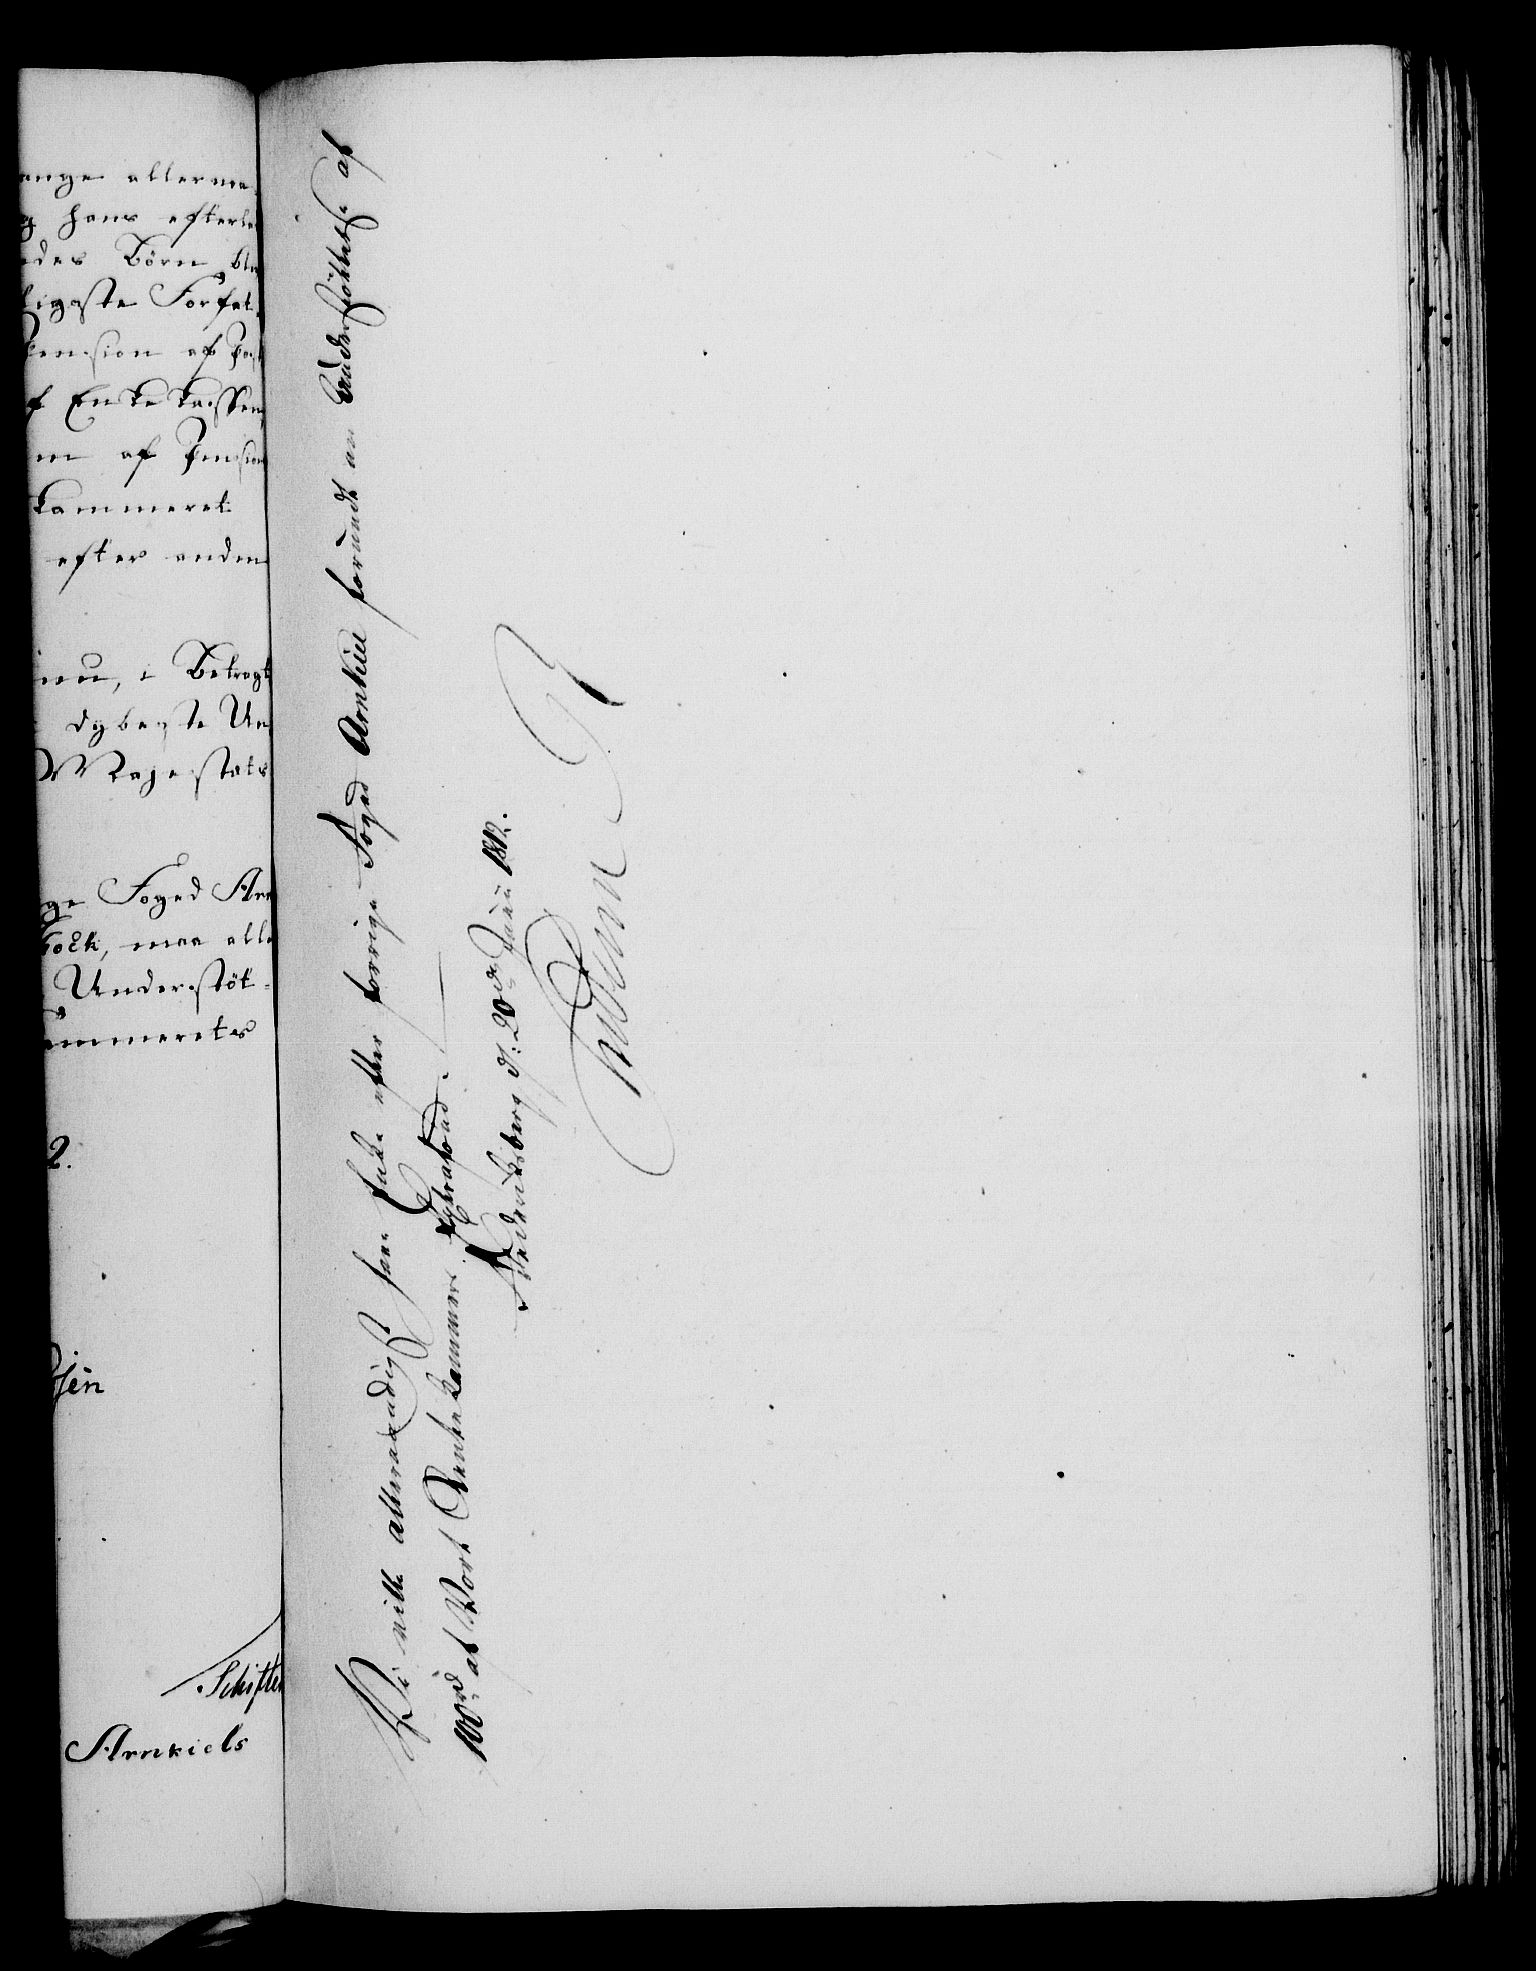 ange allerme-
g hans efterle
edes Børn ble
ligste Forfat-
Pension af Po
f Enke Kassen
m af Pension
kammeret
efter anden
inu, i Betragt
dybeste Un
Majestæts
ge Foged Arn
Fock, maa alle
Understöt-
ammerets
2.
Schifter
Arnkiels
Vi ville allernaadigst have Enke efter forrige Foged Arnkiel forundt en Understöttelse af
100 rd af Vort Rentekammer Extrafond.
Frederiksberg d: 20de Janu 1812.
Frederik R